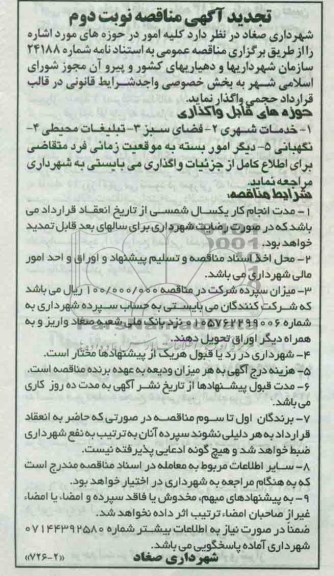 تجدید آگهی مناقصه نوبت دوم
شهرداری صغاد در نظر دارد کلیه امور در حوزه های مورد اشاره
را از طریق برگزاری مناقصه عمومی به استناد نامه شماره ۲۴۱۸۸
سازمان شهرداریها و دهیاریهای کشور و پیرو آن مجوز شورای
اسلامی شهر به بخش خصوصی واجدشرایط قانونی در قالب
قرارداد حجمی واگذار نماید.
حوزه های قابل واگذاری
۱- خدمات شهری ۲- فضای سبز ۳- تبلیغات محیطی ۴-
نگهبانی ۵- دیگر امور بسته به موقعیت زمانی فرد متقاضی
برای اطلاع کامل از جزئیات واگذاری می بایستی به شهرداری
مراجعه نماید.
شرایط مناقصه:
۱- مدت انجام کار یکسال شمسی از تاریخ انعقاد قرارداد می
باشد که در صورت رضایت شهرداری برای سالهای بعد قابل تمدید
خواهد بود.
۲- محل اخذ اسناد مناقصه و تسلیم پیشنهاد و اوراق و احد امور
مالی شهرداری می باشد.
۳- میزان سپرده شرکت در مناقصه ۱۰۰/۰۰۰/۰۰۰ ریال می باشد
که شرکت کنندگان می بایستی به حساب سپرده شهرداری به
شماره ۰۱۰۵۷۶۲۲۹۹۰۰۶ نزد بانک ملی شعبه صغاد واریز و به
همراه دیگر اوراق تحویل دهند.
۴- شهرداری در رد یا قبول هریک از پیشنهادها مختار است.
۵- هزینه درج آگهی به هر میزان ودیعه به عهده برنده مناقصه است.
۶- مدت قبول پیشنهادها از تاریخ نشر آگهی به مدت ده روز کاری
می باشد.
۷- برندگان اول تا سوم مناقصه در صورتی که حاضر به انعقاد
قرارداد به هر دلیلی نشوند سپرده آنان به ترتیب به نفع شهرداری
ضبط خواهد شد و هیچ گونه ادعایی پذیرفته نیست.
۸- سایر اطلاعات مربوط به معامله در اسناد مناقصه مندرج است
که به هنگام مراجعه به شهرداری در اختیار خواهد بود.
۹- به پیشنهادهای مبهم، مخدوش یا فاقد سپرده و امضا، یا امضاء
غیر از صاحبان امضاء ترتیب اثر داده نخواهد شد.
ضمناً در صورت نیاز به اطلاعات بیشتر شماره ۰۷۱۴۴۳۹۲۵۸۰
شهرداری آماده پاسخگویی می باشد.
شهرداری صغاد
«۷۲۶-۲»